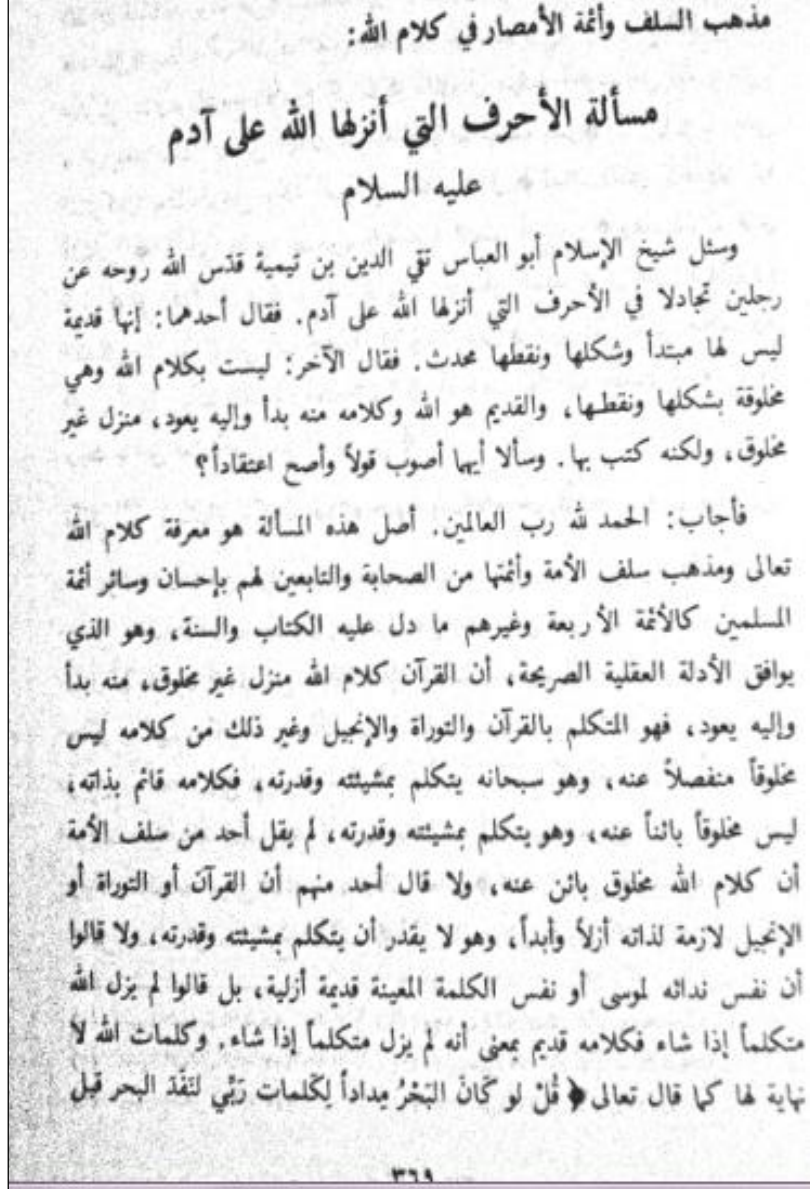 مذهب السلف وأئمة الأمصار في كلام الله:
مسألة الأحرف التي أنزلها الله على آدم
عليه السلام
وسئل شيخ الإسلام أبو العباس تقي الدين بن تيمية قدّس الله روحه عن
رجلين تجادلا في الأحرف التي أنزلها الله على آدم. فقال أحدهما: إنها قديمة
ليس لها مبتدأ وشكلها ونقطها محدث. فقال الآخر: ليست بكلام الله وهي
مخلوقة بشكلها ونقطها، والقديم هو الله وكلامه منه بدأ وإليه يعود، منزل غير
مخلوق، ولكنه كتب بها. وسألا أيهما أصوب قولاً وأصح اعتقاداً؟
فأجاب: الحمد لله رب العالمين. أصل هذه المسألة هو معرفة كلام الله
تعالى ومذهب سلف الأمة وأئمتها من الصحابة والتابعين لهم بإحسان وسائر أئمة
المسلمين كالأئمة الأربعة وغيرهم ما دل عليه الكتاب والسنة، وهو الذي
يوافق الأدلة العقلية الصريحة، أن القرآن كلام الله منزل غير مخلوق، منه بدأ
وإليه يعود، فهو المتكلم بالقرآن والتوراة والإنجيل وغير ذلك من كلامه ليس
مخلوقاً منفصلاً عنه، وهو سبحانه يتكلم بمشيئته وقدرته، فكلامه قائم بذاته،
ليس مخلوقاً بائناً عنه، وهو يتكلم بمشيئته وقدرته، لم يقل أحد من سلف الأمة
أن كلام الله مخلوق بائن عنه، ولا قال أحد منهم أن القرآن أو التوراة أو
الإنجيل لازمة لذاته أزلاً وأبداً، وهو لا يقدر أن يتكلم بمشيئته وقدرته، ولا قالوا
أن نفس ندائه لموسى أو نفس الكلمة المعينة قديمة أزلية، بل قالوا لم يزل الله
متكلماً إذا شاء فكلامه قديم بمعنى أنه لم يزل متكلماً إذا شاء. وكلمات الله لا
نهاية لها كما قال تعالى ﴿ قُلْ لو كَانَ البَحْرُ مِداداً لِكَلمات رَبِّي لنَفَدَ البحر قبل
٣٦٩